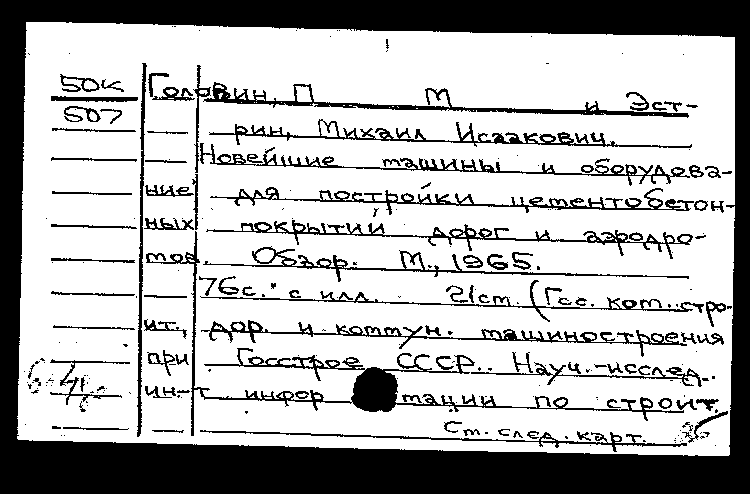 50к Головин, П М и Эст-
607 рин, Михаил Исаакович.
Новейшие машины и оборудова-
ние для постройки цементобетон-
ных покрытий дорог и аэродро-
мов. Обзор. М., 1965.
76с. с илл. 21см. (Гос. ком. стро-
ит., дор. и коммун. машиностроения
при Госстрое СССР. Науч.-исслед.
ин-т инфор мации по строит.
См. след. карт.